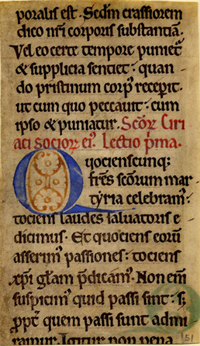 poralis est. Sed in crassiorem
dico nr̄i corporis substantiā.
Vel eo certe tempore puniet᷑
& supplicia sentiet. quan
do pristinum corp᷒ recepit.
ut cum quo peccauit. cum
ipso & puniatur. Scōꝝ Ciri
aci socioꝝ ei᷒. Lectio p̄ma.
Quociensciūq;
fr̄es scōrum mar
tyria celebram᷒.
tociens laudes saluatoris e
dicimus. Et quociens eorū
asserim᷒ passiones. tociens
xp̄i gl̄am p̄dicam᷒. Non em̄
suspicim᷒ quid passi sunt. s;
ꝓpt᷑ quem passi sunt admi
ramur. non pena
151